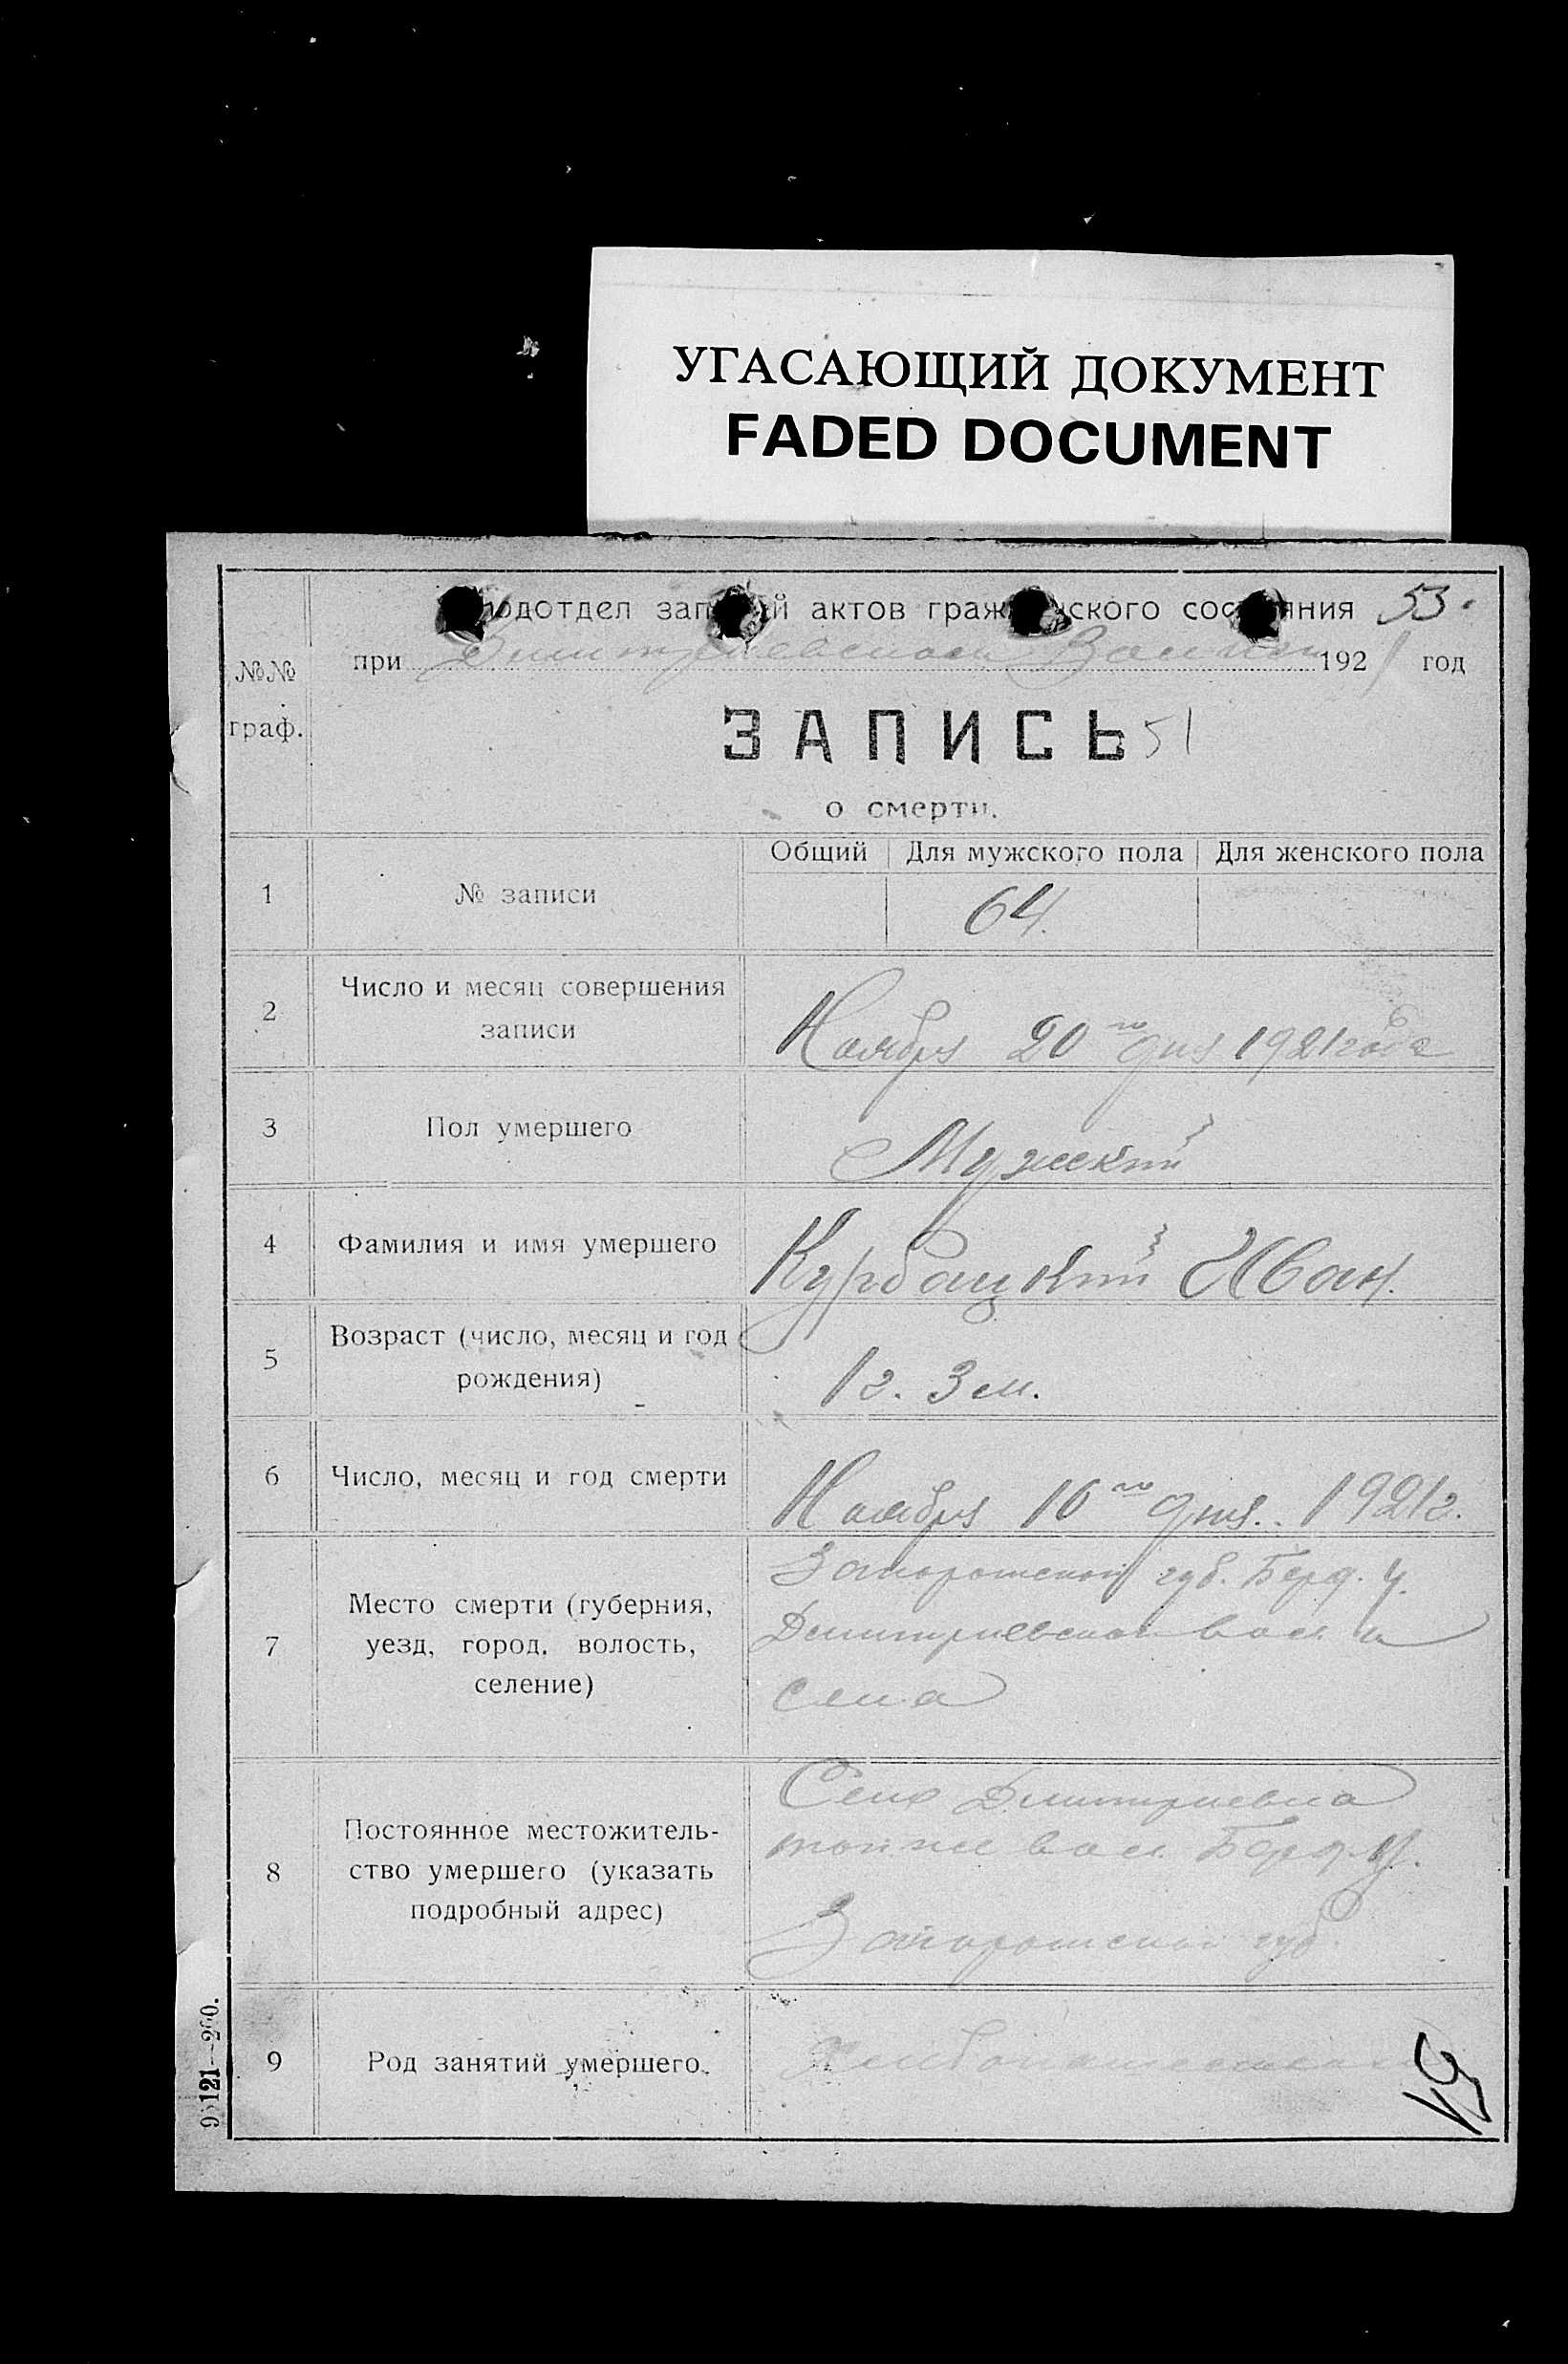 УГАСАЮЩИЙ ДОКУМЕНТ
FADED DOCUMENT
подотдел записей актов гражданского состояния 53.
при Димитриевском Волисп 1921 год
№№
граф.
ЗАПИСЬ 51
о смерти.
Общий Для мужского пола Для женского пола
1 № записи 64.
2 Число и месяц совершения
записи
Ноября 20го дня 1921 года
3 Пол умершего Мужский
4 Фамилия и имя умершего Курбацкий Иван.
5 Возраст (число, месяц и год
рождения)
1 г. 3 м.
6 Число, месяц и год смерти Ноября 16го дня. 1921 г.
7 Место смерти (губерния,
уезд, город, волость,
селение)
Запорожской губ. Берд. У.
Димитриевской вол. и
села
8 Постоянное местожитель-
ство умершего (указать
подробный адрес)
Село Димитриевка
тойже вол. Берд. У.
Запорожской губ.
9 Род занятий умершего.
51